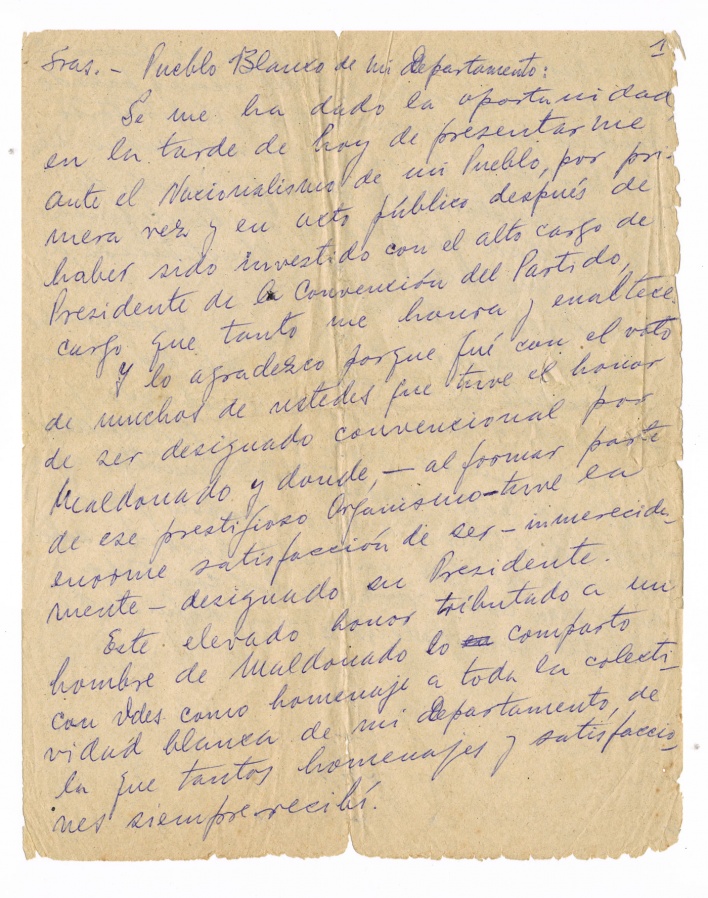 1
Sras. - Pueblo Blanco de mi Departamento:
Se me ha dado la oportunidad
en la tarde de hoy de presentarme
ante el Nacionalismo de mi Pueblo, por pri-
mera vez y en acto público después de
haber sido investido con el alto cargo de
Presidente de la Convención del Partido,
cargo que tanto me honra y enaltece.
Y lo agradezco porque fué con el voto
de muchos de ustedes que tuve el honor
de ser designado convencional por
Maldonado y donde, - al formar parte
de ese prestigioso Organismo - tuve la
enorme satisfacción de ser - inmerecida-
mente - designado su Presidente.
Este elevado honor tributado a un
hombre de Maldonado lo comparto
con Vdes como homenaje a toda la colecti-
vidad blanca de mi Departamento, de
la que tantos homenajes y satisfaccio-
nes siempre recibí.